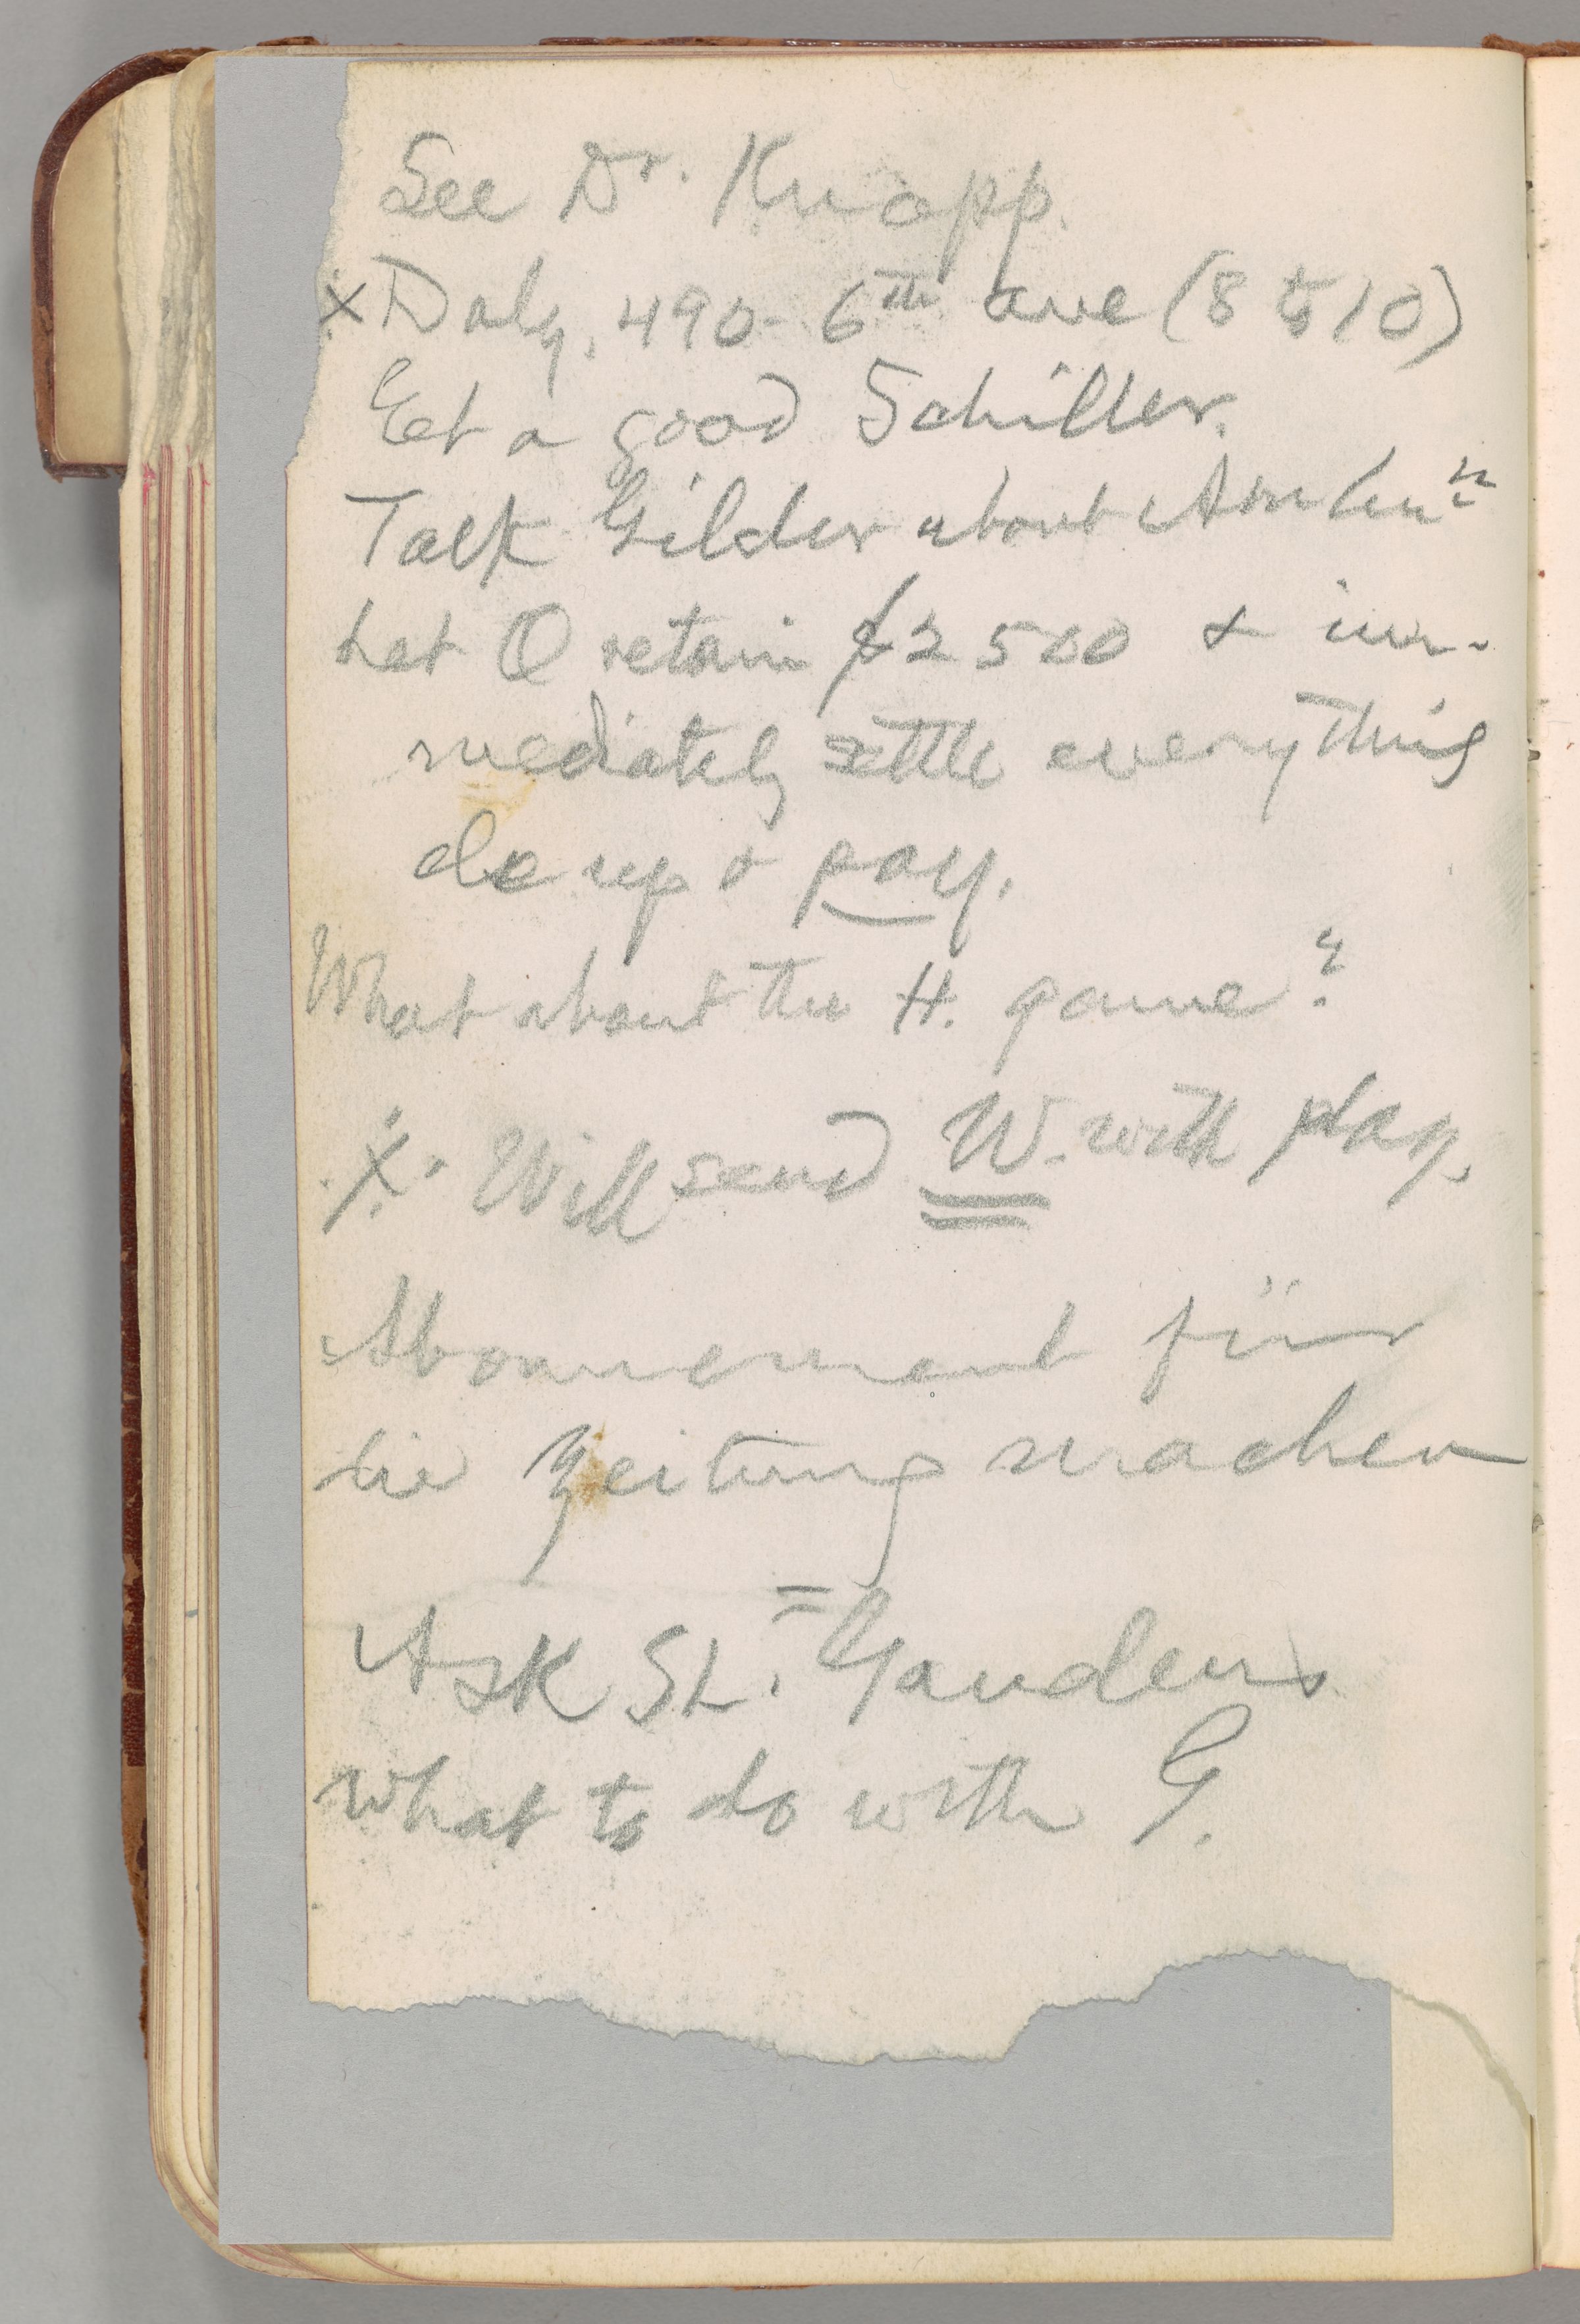 See Dr. Knapp.
x Daly, 490 - 6th ave (8 to 10)
Get a good Schiller.
Talk Gilder about
Let O retain $2500 & im-
mediately settle everything
do up & pay.
What about the H. game?
x Will send W. with play.
Abonnement für
die Zeitung machen
Ask St. Gaudens
what to do with G.